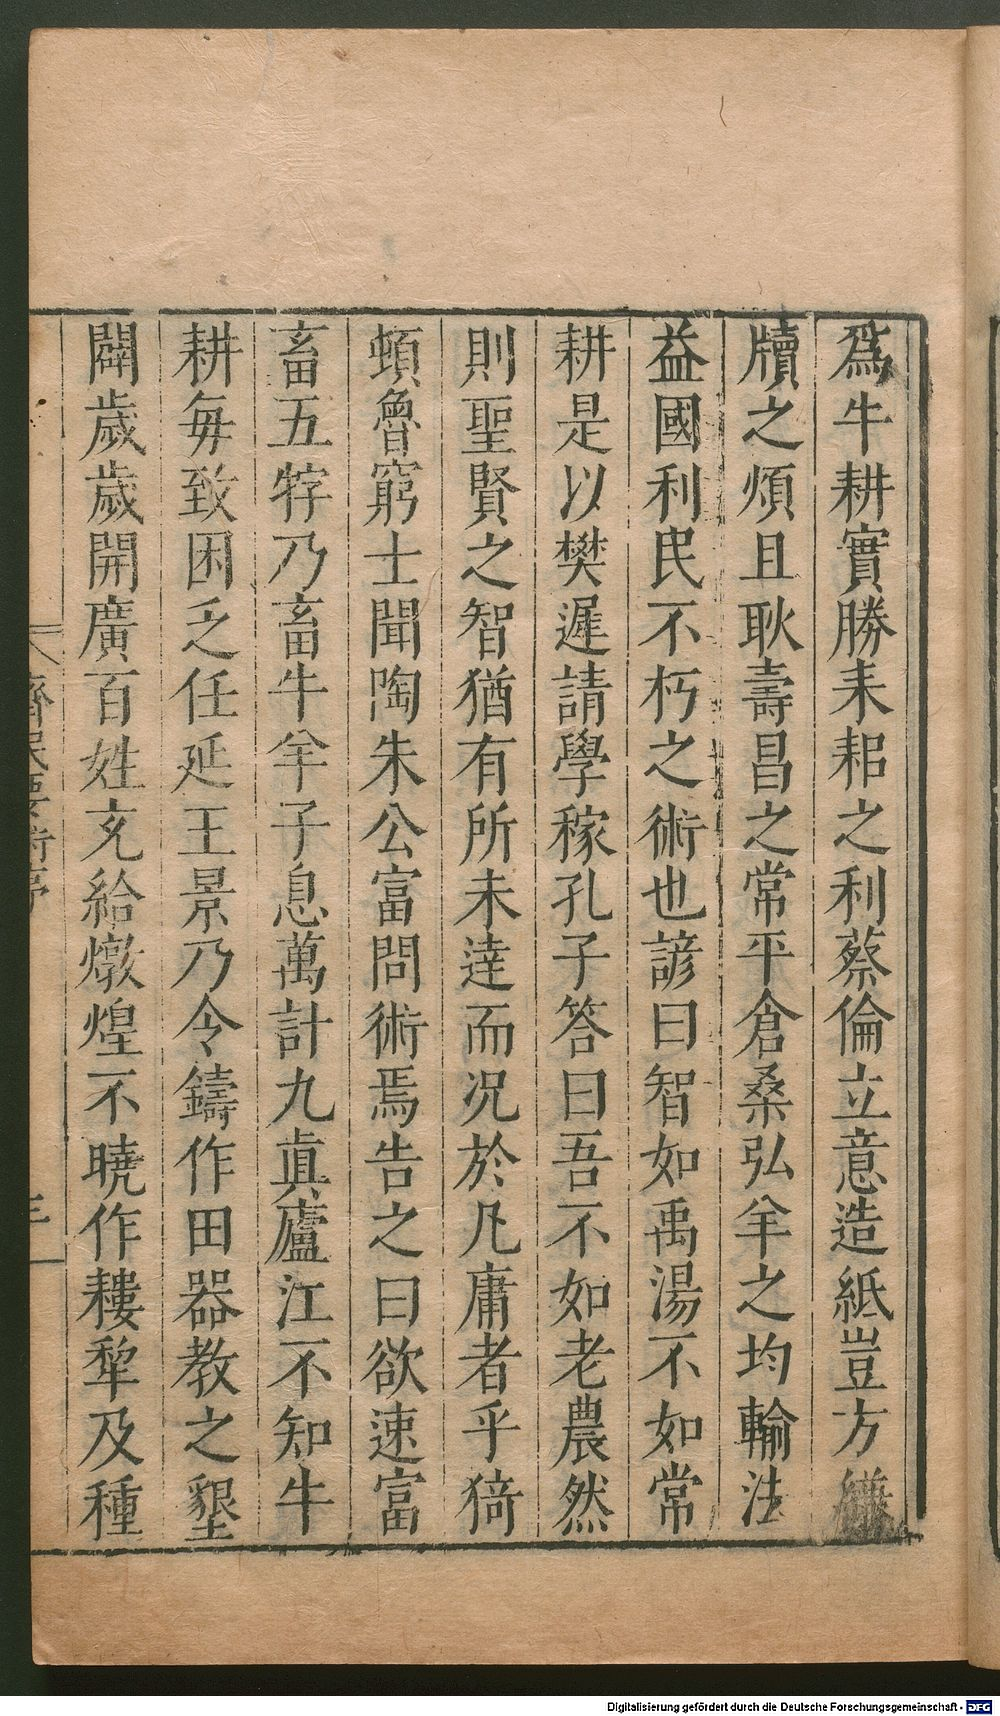 爲牛耕實勝耒耜之利蔡倫立意造紙豈方縑
牘之煩且耿壽昌之常平倉桑弘羊之均輸法
益國利民不朽之術也諺曰智如禹湯不如常
耕是以樊遲請學稼孔子答曰吾不如老農然
則聖賢之智猶有所未達而况於凡庸者乎猗
頓魯窮士聞陶朱公富問術焉告之曰欲速富
畜五牸乃畜牛羊子息萬計九眞廬江不知牛
耕毎致困乏任延王景乃令鑄作田器教之墾
闢歲歲開廣百姓充給燉煌不曉作耬犂及種
齊民要術序
Digitalisierung gefördert durch die Deutsche Forschungsgemeinschaft - DFG